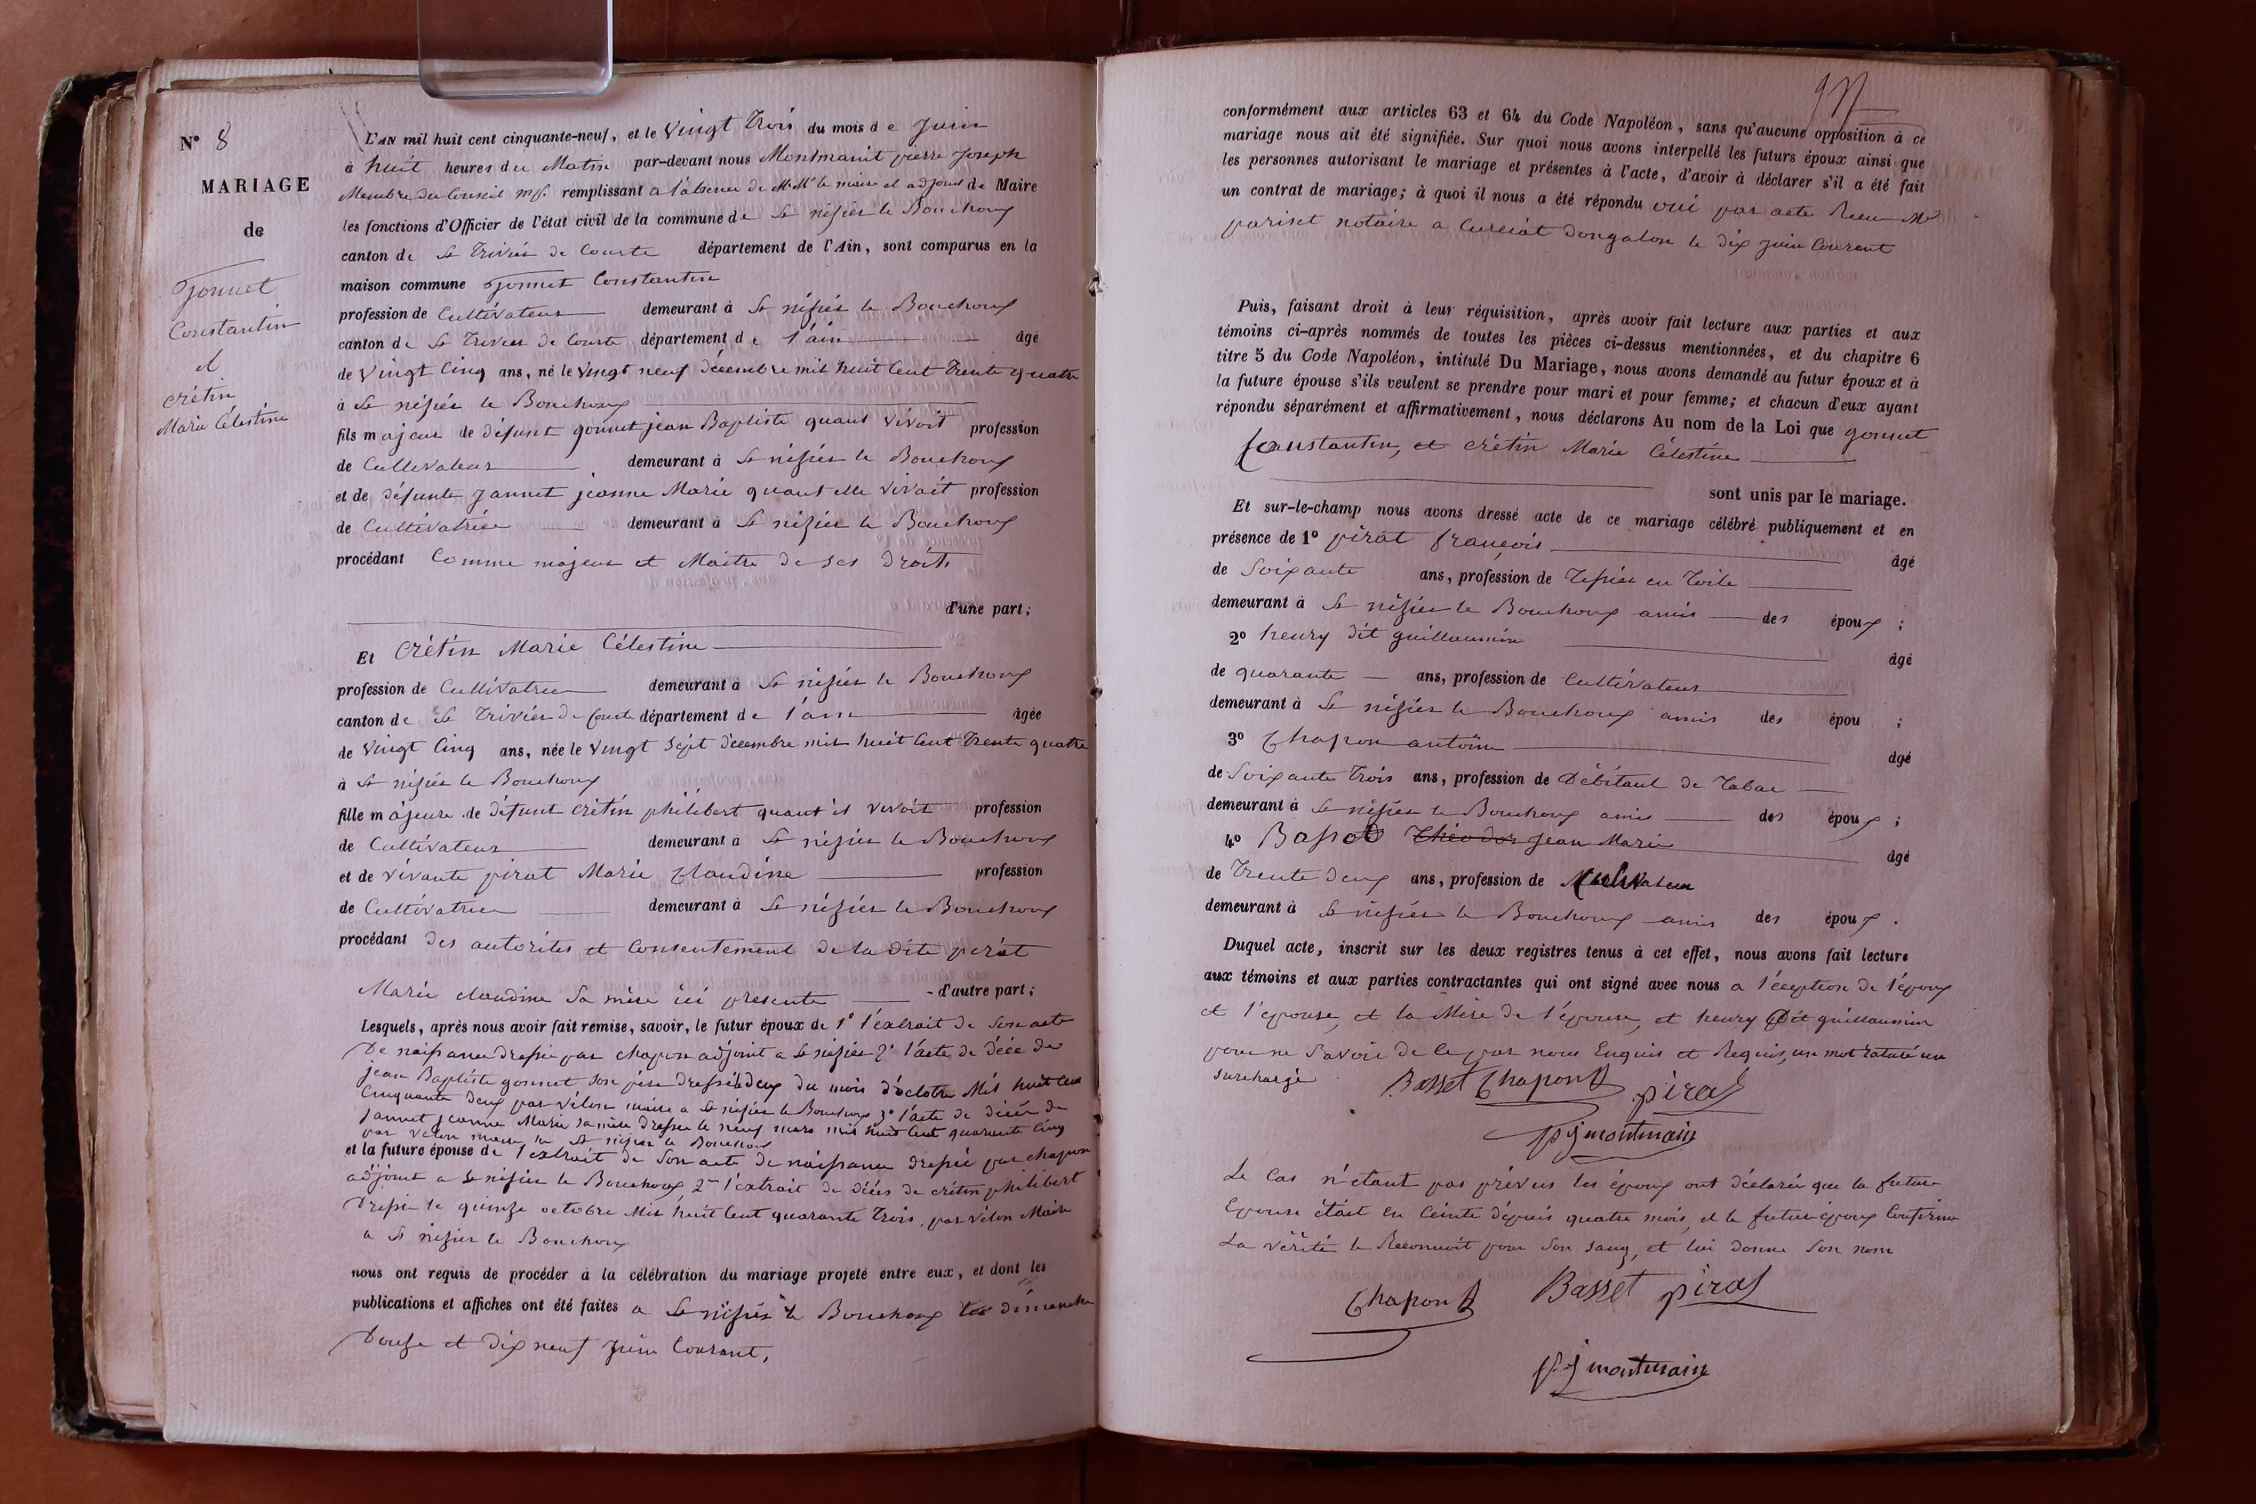 N° 8
MARIAGE
de
Gonnet
Constantin
et
crétin
Marie Célestine
L'AN mil huit cent cinquante-neuf, et le vingt trois du mois de juin
à huit heures du Matin par-devant nous Montmanit pierre joseph
Membre du Conseil mpl. remplissant a l'absence de MMrs le maire et adjoint de Maire
les fonctions d'Officier de l'état civil de la commune de St nisier le Bouchoux
canton de St Trivier de Courte département de l'Ain, sont comparus en la
maison commune gonnet Constantin
profession de Cultivateur demeurant à St nisier le Bouchoux
canton de St Trivier de Courte département de l'ain âgé
de vingt cinq ans, né le vingt neuf décembre mil huit cent trente quatre
à St nisier le Bouchoux
fils majeur de défunt gonnet jean Baptiste quant vivoit profession
de Cultivateur demeurant à St nisier le Bouchoux
et de défunte jannet jeanne Marie quant elle vivait profession
de Cultivatrice demeurant à St nisier le Bouchoux
procédant Comme majeur et Maitre de ses droits
d'une part;
Et Crétin Marie Célestine
profession de Cultivatrice demeurant à St nisier le Bouchoux
canton de St Trivier de Courte département de l'ain âgée
de vingt Cinq ans, née le vingt sept décembre mil huit cent trente quatre
à St nisier le Bouchoux
fille majeure de défunt crétin philibert quant il vivoit profession
de Cultivateur demeurant à St nisier le Bouchoux
et de vivante pirat Marie Claudine profession
de Cultivatrice demeurant à St nisier le Bouchoux
procédant des autorités et Consentement de la dite pirat
Marie claudine Sa mère ici presente - d'autre part;
Lesquels, après nous avoir fait remise, savoir, le futur époux de 1° l'extrait de Son acte
De naissance dressé par chapon adjoint a St nisier 2° l'acte de décé de
jean Baptiste gonnet son père dressé le deux du mois d'octobre Mil huit cent
Cinquante deux par vélon maire a St nisier le Bouchoux 3° l'acte de décée de
jannet jeanne Marie sa mère dressé le neuf mars mil huit cent quarante cinq
par velon maire a St nisier le Bouchoux
et la future épouse de l'extrait de Son acte de naissance dressé par chapon
adjoint a St nisier le Bouchoux 2me l'extrait de décés de crétin philibert
Dressé le quinze octobre Mil huit cent quarante trois, par vélon Maire
a St nisier le Bouchoux
nous ont requis de procéder à la célébration du mariage projeté entre eux, et dont les
publications et affiches ont été faites a St nisier le Bouchoux les dimanche
Douze et dix neuf juin Courant,
conformément aux articles 63 et 64 du Code Napoléon, sans qu'aucune opposition à ce
mariage nous ait été signifiée. Sur quoi nous avons interpellé les futurs époux ainsi que
les personnes autorisant le mariage et présentes à l'acte, d'avoir à déclarer s'il a été fait
un contrat de mariage; à quoi il nous a été répondu oui par acte Recu Me
pariset notaire a Curciat dongalon le dix juin Courant
Puis, faisant droit à leur réquisition, après avoir fait lecture aux parties et aux
témoins ci-après nommés de toutes les pièces ci-dessus mentionnées, et du chapitre 6
titre 5 du Code Napoléon, intitulé Du Mariage, nous avons demandé au futur époux et à
la future épouse s'ils veulent se prendre pour mari et pour femme; et chacun d'eux ayant
répondu séparément et affirmativement, nous déclarons Au nom de la Loi que gonnet
Constantin, et crétin Marie Célestine
sont unis par le mariage.
Et sur-le-champ nous avons dressé acte de ce mariage célébré publiquement et en
présence de 1° pirat françois âgé
de Soixante ans, profession de Tissier en Toile
demeurant à St nisier le Bouchoux amis des époux ;
2° henry dit guillaumin âgé
de quarante ans, profession de Cultivateur
demeurant à St nisier le Bouchoux amis des épou ;
3° Chapon antoine âgé
de Soixante trois ans, profession de Débitant de Tabac
demeurant à St nisier le Bouchoux amis des époux ;
4° Basset Théodor Jean Marie âgé
de Trente deux ans, profession de Cultivateur
demeurant à St nisier le Bouchoux amis des époux .
Duquel acte, inscrit sur les deux registres tenus à cet effet, nous avons fait lecture
aux témoins et aux parties contractantes qui ont signé avec nous a l'éception de l'époux
et l'épouse, et la Mère de l'épouse, et henry Dit guillaumin
pour ne Savoir de ce par nous Enquis et Requis, un mot raturé un
surchargé
Basset Chapon A pirat
ppj montmain
Le Cas n'étant pas prévus les époux ont déclarée que la future
Epouse était En Ceinte dépuis quatre mois, et le futur époux Confirme
La vérité le Reconnoit pour Son Sang, et lui donne Son nom
Chapon A Basset pirat
ppj montmain